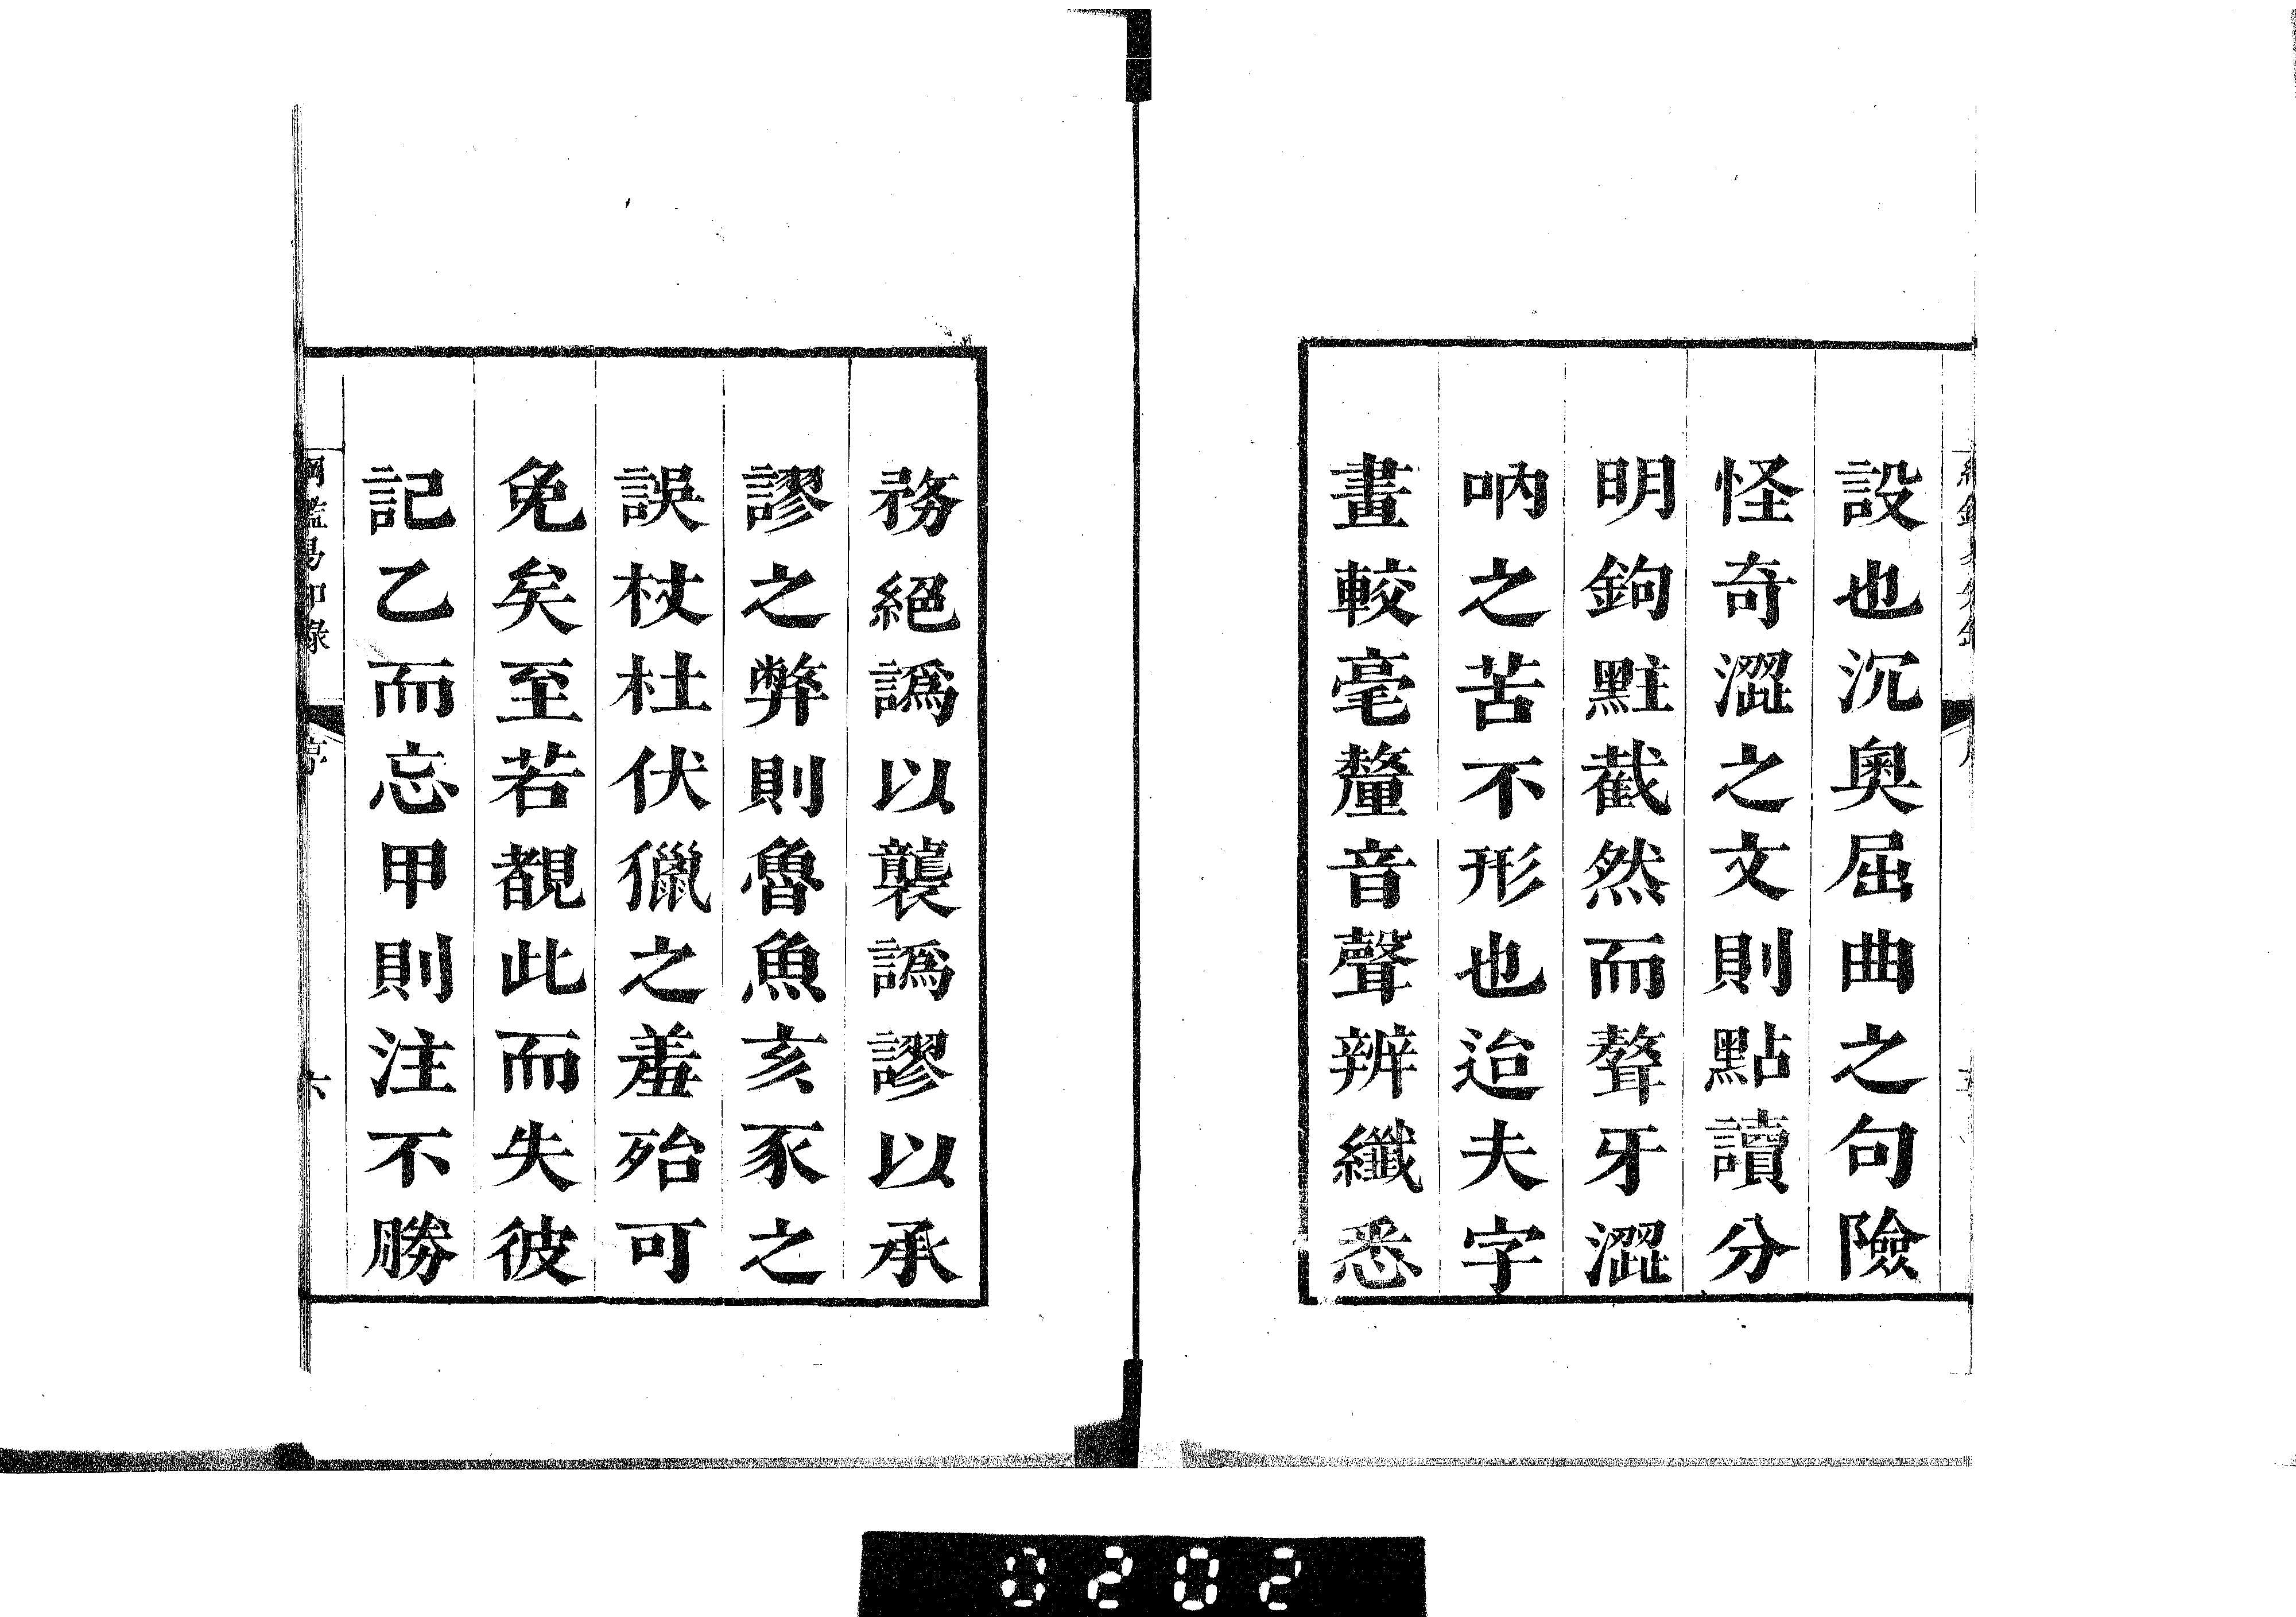 設也沉奥屈曲之句險
怪奇澀之文則點讀分
明鉤黈截然而聱牙澀
吶之苦不形也迨夫字
畫較毫釐音聲辨纖悉
務絕譌以襲譌謬以承
謬之弊則魯魚亥豕之
誤杖杜伏獵之羞殆可
免矣至若覩此而失彼
記乙而忘甲則注不勝
綱鑑易知錄
序
六
0202